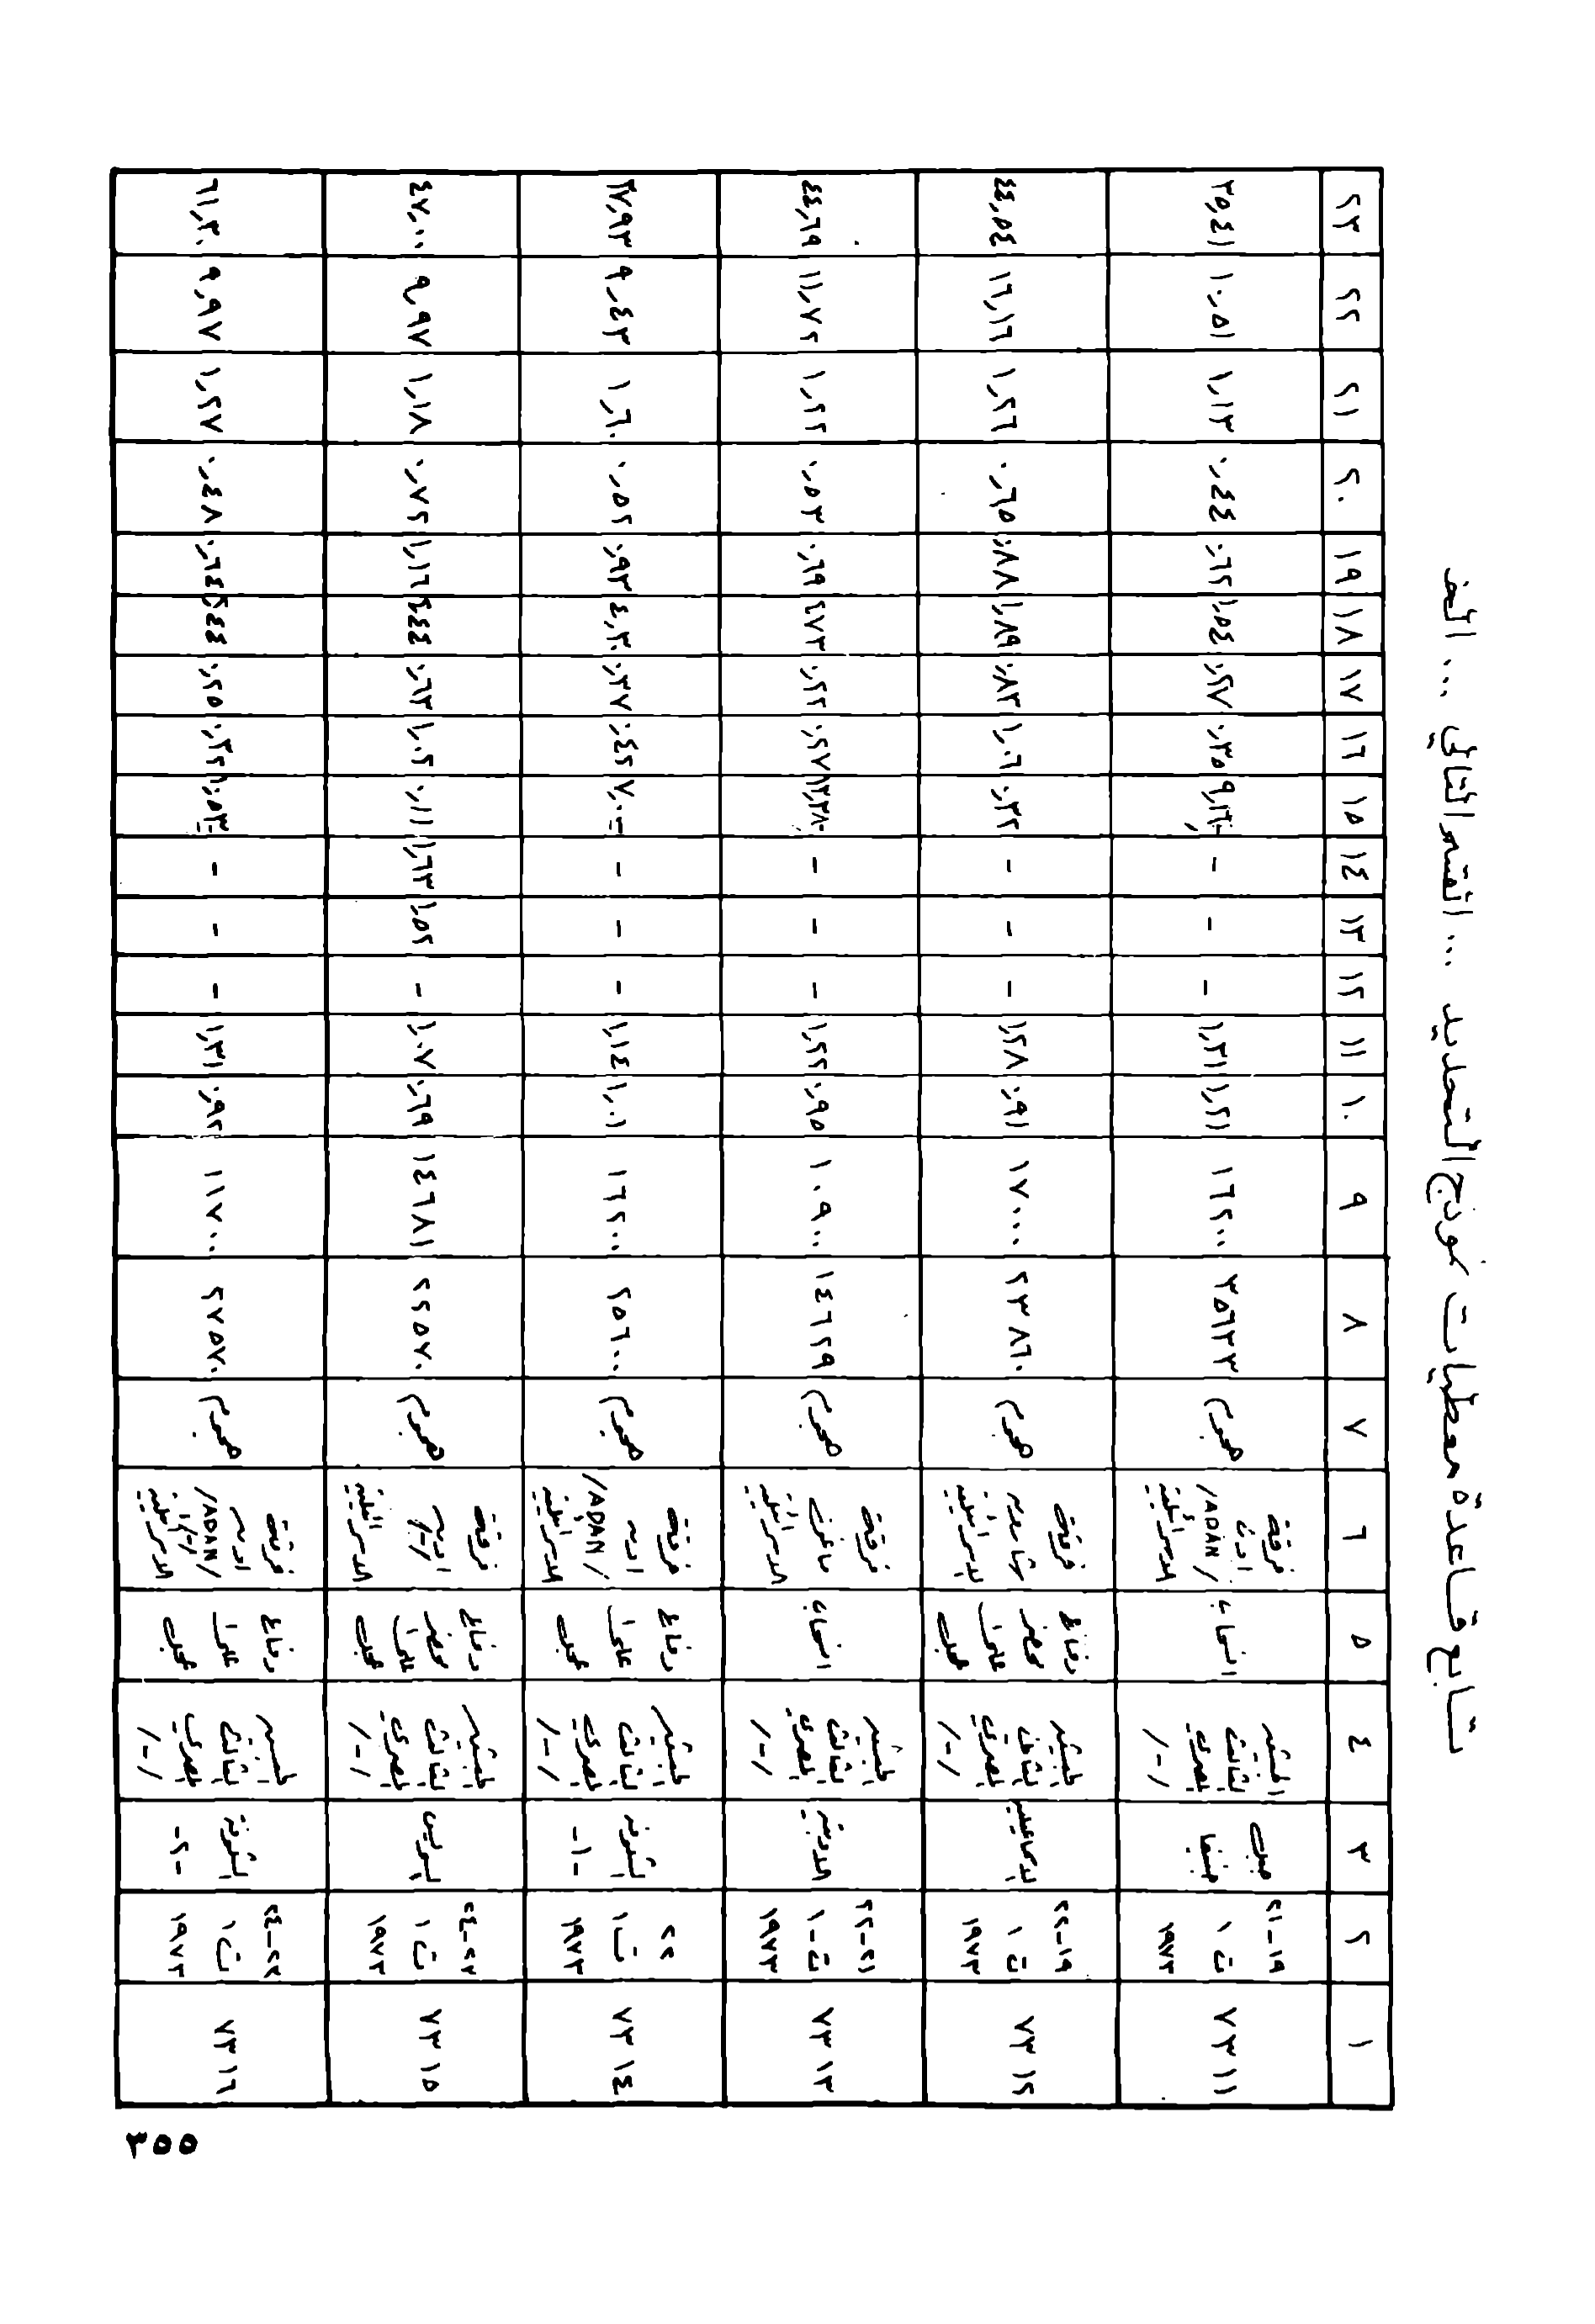 تابع قاعدة معطيات نموذج التحديد ... القسم الثاني ... الف
١ ٢ ٣ ٤ ٥ ٦ ٧ ٨ ٩ ١٠ ١١ ١٢ ١٣ ١٤ ١٥ ١٦ ١٧ ١٨ ١٩ ٢٠ ٢١ ٢٢ ٢٣
٧٣١١
١٩-٢١
ت ١
١٩٧٣
جنيفا
الجيش
الثالث
المصري
/-/
انسحاب
فرقة
ادن
/ADAN/
الاسرائيلية
هجوم
٣٥٦٣٣ ١٦٢٠٠ ١,٢١ ١,٣١ - - - ٠,٣٥ ٠,٢٧ ١,٥٤ ٠,٦٢ ٠,٤٤ ١,١٣ ١٠,٥١ ٣٥,٤١
٧٣١٢
١٩-٢٢
ت ١
١٩٧٣
الاسماعيلية
الجيش
الثاني
المصري
/-/
دفاع
محضر
على
عجل
فرقة
شارون
الاسرائيلية
هجوم
٢٣٨٦٠ ١٧٠٠٠ ٠,٩١ ١,٢٨ - - - ٠,٣٢ ١,٠٦ ٠,٨٣ ١,٨٩ ٠,٨٨ ٠,٦٥ ١,٢٦ ١٦,١٦ ٤٤,٥٤
٧٣١٣
٢١-٢٢
ت-١
١٩٧٣
الجيش
الثالث
المصري
/-/
انسحاب
فرقة
ماغن
الاسرائيلية
هجوم
١٤٦٢٩ ١٠٩٠٠ ٠,٩٥ ١,٢٢ - - - ٠,٢٧ ٠,٢٢ ٠,٦٩ ٠,٥٣ ١,٢٢ ١١,٧٢ ٤٤,٦٩
٧٣١٤
٢٢
ت ١
١٩٧٣
الشلوفة
-١-
الجيش
الثالث
المصري
/-/
دفاع
على
عجل
فرقة
ادن
/ADAN/
الاسرائيلية
هجوم
٢٥٦٠٠ ١٦٢٠٠ ١,٠١ ١,١٤ - - - ٠,٤٢ ٠,٣٧ ٤,٣٠ ٠,٩٣ ٠,٥٢ ١,٦٠ ٩,٤٣ ٣٧,٩٣
٧٣١٥
٢٣-٢٤
ت ١
١٩٧٣
السويس
الجيش
الثالث
المصري
/-/
دفاع
محضر
على
عجل
فرقة
ادن
/-/
الاسرائيلية
هجوم
٢٢٥٧٠ ١٤٦٨١ ٠,٦٩ ١,٠٧ - ١,٥٢ ١,٦٣ ٠,١١ ١,٠٢ ٠,٦٣ ١,١٦ ٠,٧٢ ١,١٨ ٩,٩٧ ٤٧,٠٠
٧٣١٦
٢٣-٢٤
ت ١
١٩٧٣
الشلوفة
-٢-
الجيش
الثالث
المصري
/-/
دفاع
على
عجل
فرقة
ادن
/ADAN/
/-/
الاسرائيلية
هجوم
٢٧٥٧٠ ١١٧٠٠ ٠,٩٢ ١,٣١ - - - ٠,٣٢ ٠,٢٥ ٠,٦٤ ٠,٤٨ ١,٢٧ ٩,٩٧ ٦١,٣٠
٣٥٥